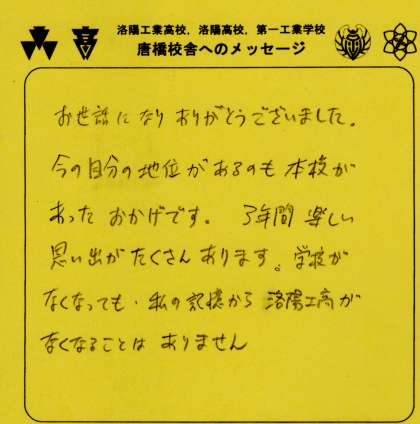 洛陽工業高校，洛陽高校，第一工業学校
唐橋校舎へのメッセージ
お世話になり ありがとうございました。
今の自分の地位があるのも 本校が
あった おかげです。 3年間 楽しい
思い出が たくさん あります。学校が
なくなっても、私の記憶から 洛陽工高が
なくなることは ありません